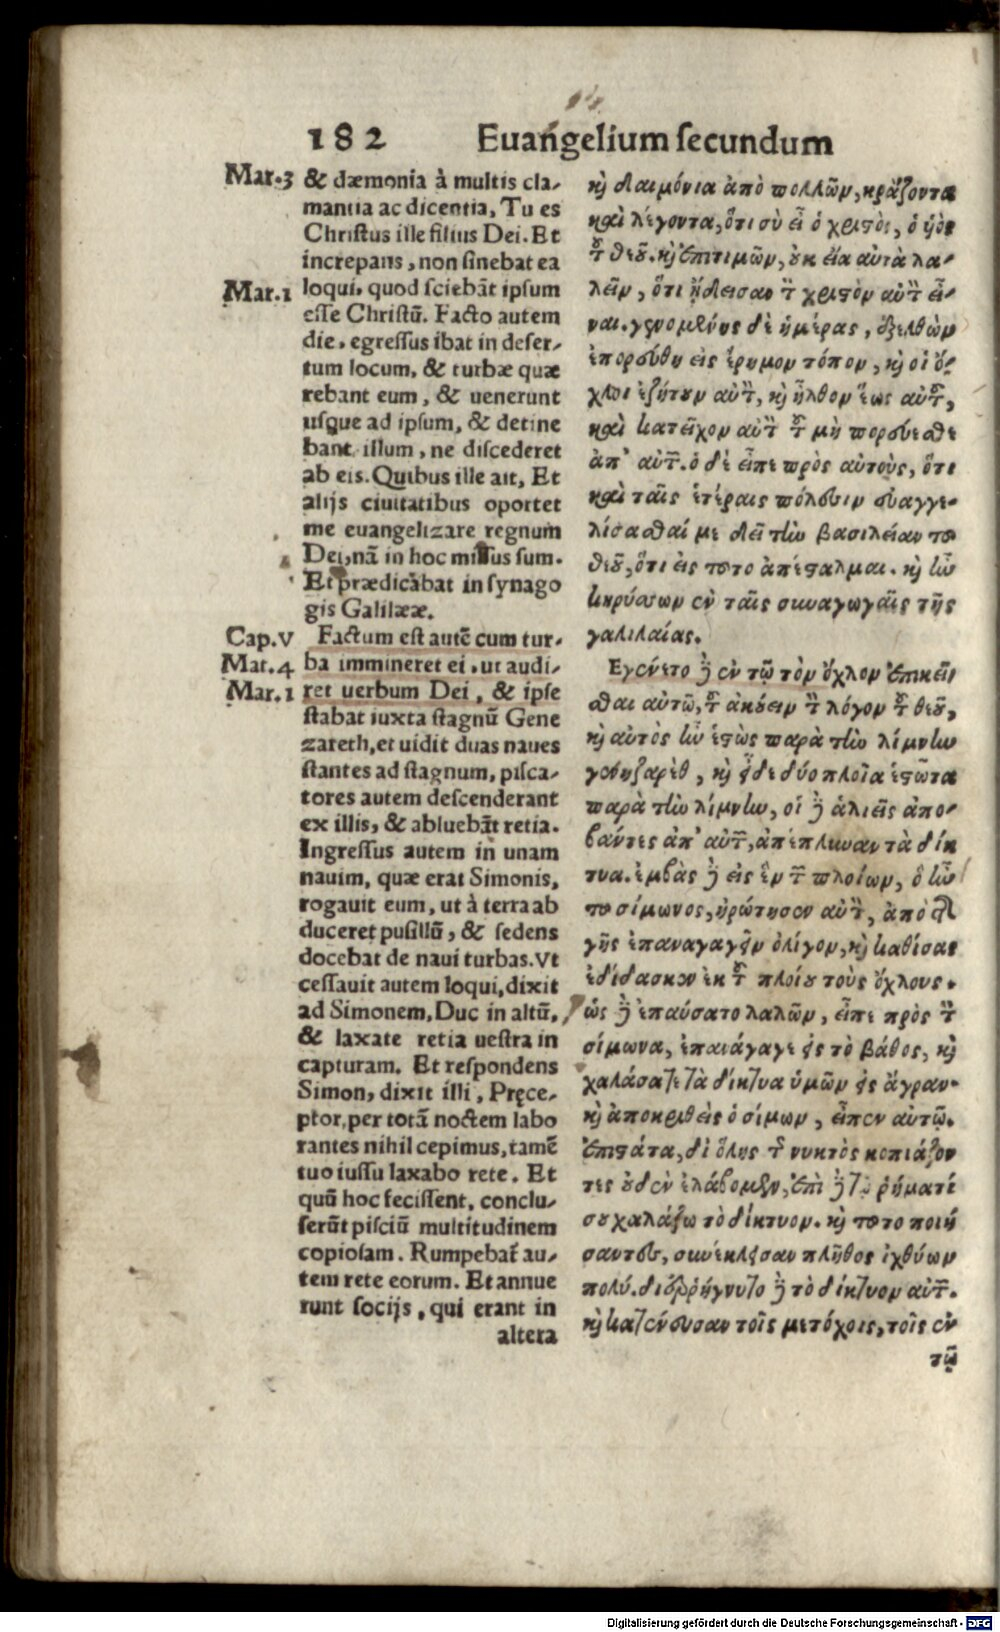 182 Euangelium secundum
Mar.3
Mar.1
Cap.V
Mat.4
Mar.1
& dæmonia à multis cla-
mantia ac dicentia, Tu es
Christus ille filius Dei. Et
increpans, non sinebat ea
loqui, quod sciebãt ipsum
esse Christũ. Facto autem
die, egressus ibat in deser-
tum locum, & turbæ quæ
rebant eum, & uenerunt
usque ad ipsum, & detine
bant illum, ne discederet
ab eis. Quibus ille ait, Et
alijs ciuitatibus oportet
me euangelizare regnum
Dei, nã in hoc missus sum.
Et prædicabat in synago
gis Galilææ.
Factum est autẽ cum tur-
ba immineret ei, ut audi-
ret uerbum Dei, & ipse
stabat iuxta stagnũ Gene
zareth, et uidit duas naues
stantes ad stagnum, pisca-
tores autem descenderant
ex illis, & abluebãt retia.
Ingressus autem in unam
nauim, quæ erat Simonis,
rogauit eum, ut à terra ab
duceret pusillũ, & sedens
docebat de naui turbas. Vt
cessauit autem loqui, dixit
ad Simonem, Duc in altũ,
& laxate retia uestra in
capturam. Et respondens
Simon, dixit illi, Pręce-
ptor, per totã noctem labo
rantes nihil cepimus, tamẽ
tuo iussu laxabo rete. Et
quũ hoc fecissent, conclu-
serũt pisciũ multitudinem
copiosam. Rumpebat̃ au-
tem rete eorum. Et annue
runt socijs, qui erant in
altera
ϗ δαιμόνια ἀπὸ πολλῶν, κράζοντα
καὶ λέγοντα, ὅτι σὺ εἶ ὁ χριστὸς, ὁ ὑὸς
τοῦ θεοῦ. ϗ ἐπιτιμῶν, οὐκ εἴα αὐτὰ λα-
λεῖν, ὅτι ᾔδεισαν τὸν χριστὸν αὐτὸν εἶ-
ναι. γενομένης δὲ ἡμέρας, ἐξελθὼν
ἐπορεύθη εἰς ἔρημον τόπον, ϗ οἱ ὄ-
χλοι ἐζήτουν αὐτὸν, ϗ ἦλθον ἕως αὐτοῦ,
καὶ κατεῖχον αὐτὸν τοῦ μὴ πορεύεσθε
ἀπ' αὐτῶν. ὁ δὲ εἶπε πρὸς αὐτοὺς, ὅτι
καὶ ταῖς ἑτέραις πόλεσιν εὐαγγε-
λίσασθαί με δεῖ τὴν βασιλείαν τοῦ
θεοῦ, ὅτι εἰς τοῦτο ἀπέσταλμαι. ϗ ἦν
κηρύσσων ἐν ταῖς συναγωγαῖς τῆς
γαλιλαίας.
Εγένετο δὲ ἐν τῷ τὸν ὄχλον ἐπικεῖ
σθαι αὐτῶ, τοῦ ἀκούειν τὸν λόγον τοῦ θεοῦ,
ϗ αὐτὸς ἦν ἑστὼς παρὰ τὴν λίμνην
γενηζαρὲθ, ϗ εἶδε δύο πλοῖα ἑστῶτα
παρὰ τὴν λίμνην, οἱ δὲ ἁλιεῖς ἀπο-
βάντες ἀπ' αὐτῶν, ἀπέπλυναν τὰ δίκ
τυα. ἐμβὰς δὲ εἰς ἓν τῶν πλοίων, ὃ ἦν
τοῦ σίμωνος, ἠρώτησεν αὐτὸν, ἀπὸ τῆς
γῆς ἐπαναγαγεῖν ὀλίγον, ϗ καθίσας
ἐδίδασκεν ἐκ τοῦ πλοίου τοὺς ὄχλους.
ὡς δὲ ἐπαύσατο λαλῶν, εἶπε πρὸς τὸν
σίμωνα, ἐπανάγαγε εἰς τὸ βάθος, ϗ
χαλάσατε τὰ δίκτυα ὑμῶν εἰς ἄγραν.
ϗ ἀποκριθεὶς ὁ σίμων, εἶπεν αὐτῷ.
ἐπιστάτα, δι ὅλης τῆς νυκτὸς κοπιάζον
τες οὐδὲν ἐλάβομεν, ἐπὶ δὲ τῷ ῥήματί
σου χαλάξω τὸ δίκτυον. ϗ τοῦτο ποιή
σαντες, συνέκλεισαν πλῆθος ἰχθύων
πολύ. διερρήγνυτο δὲ τὸ δίκτυον αὐτῶν.
ϗ κατένευσαν τοῖς μετόχοις, τοῖς ἐν
τῷ
Digitalisierung gefördert durch die Deutsche Forschungsgemeinschaft - DFG